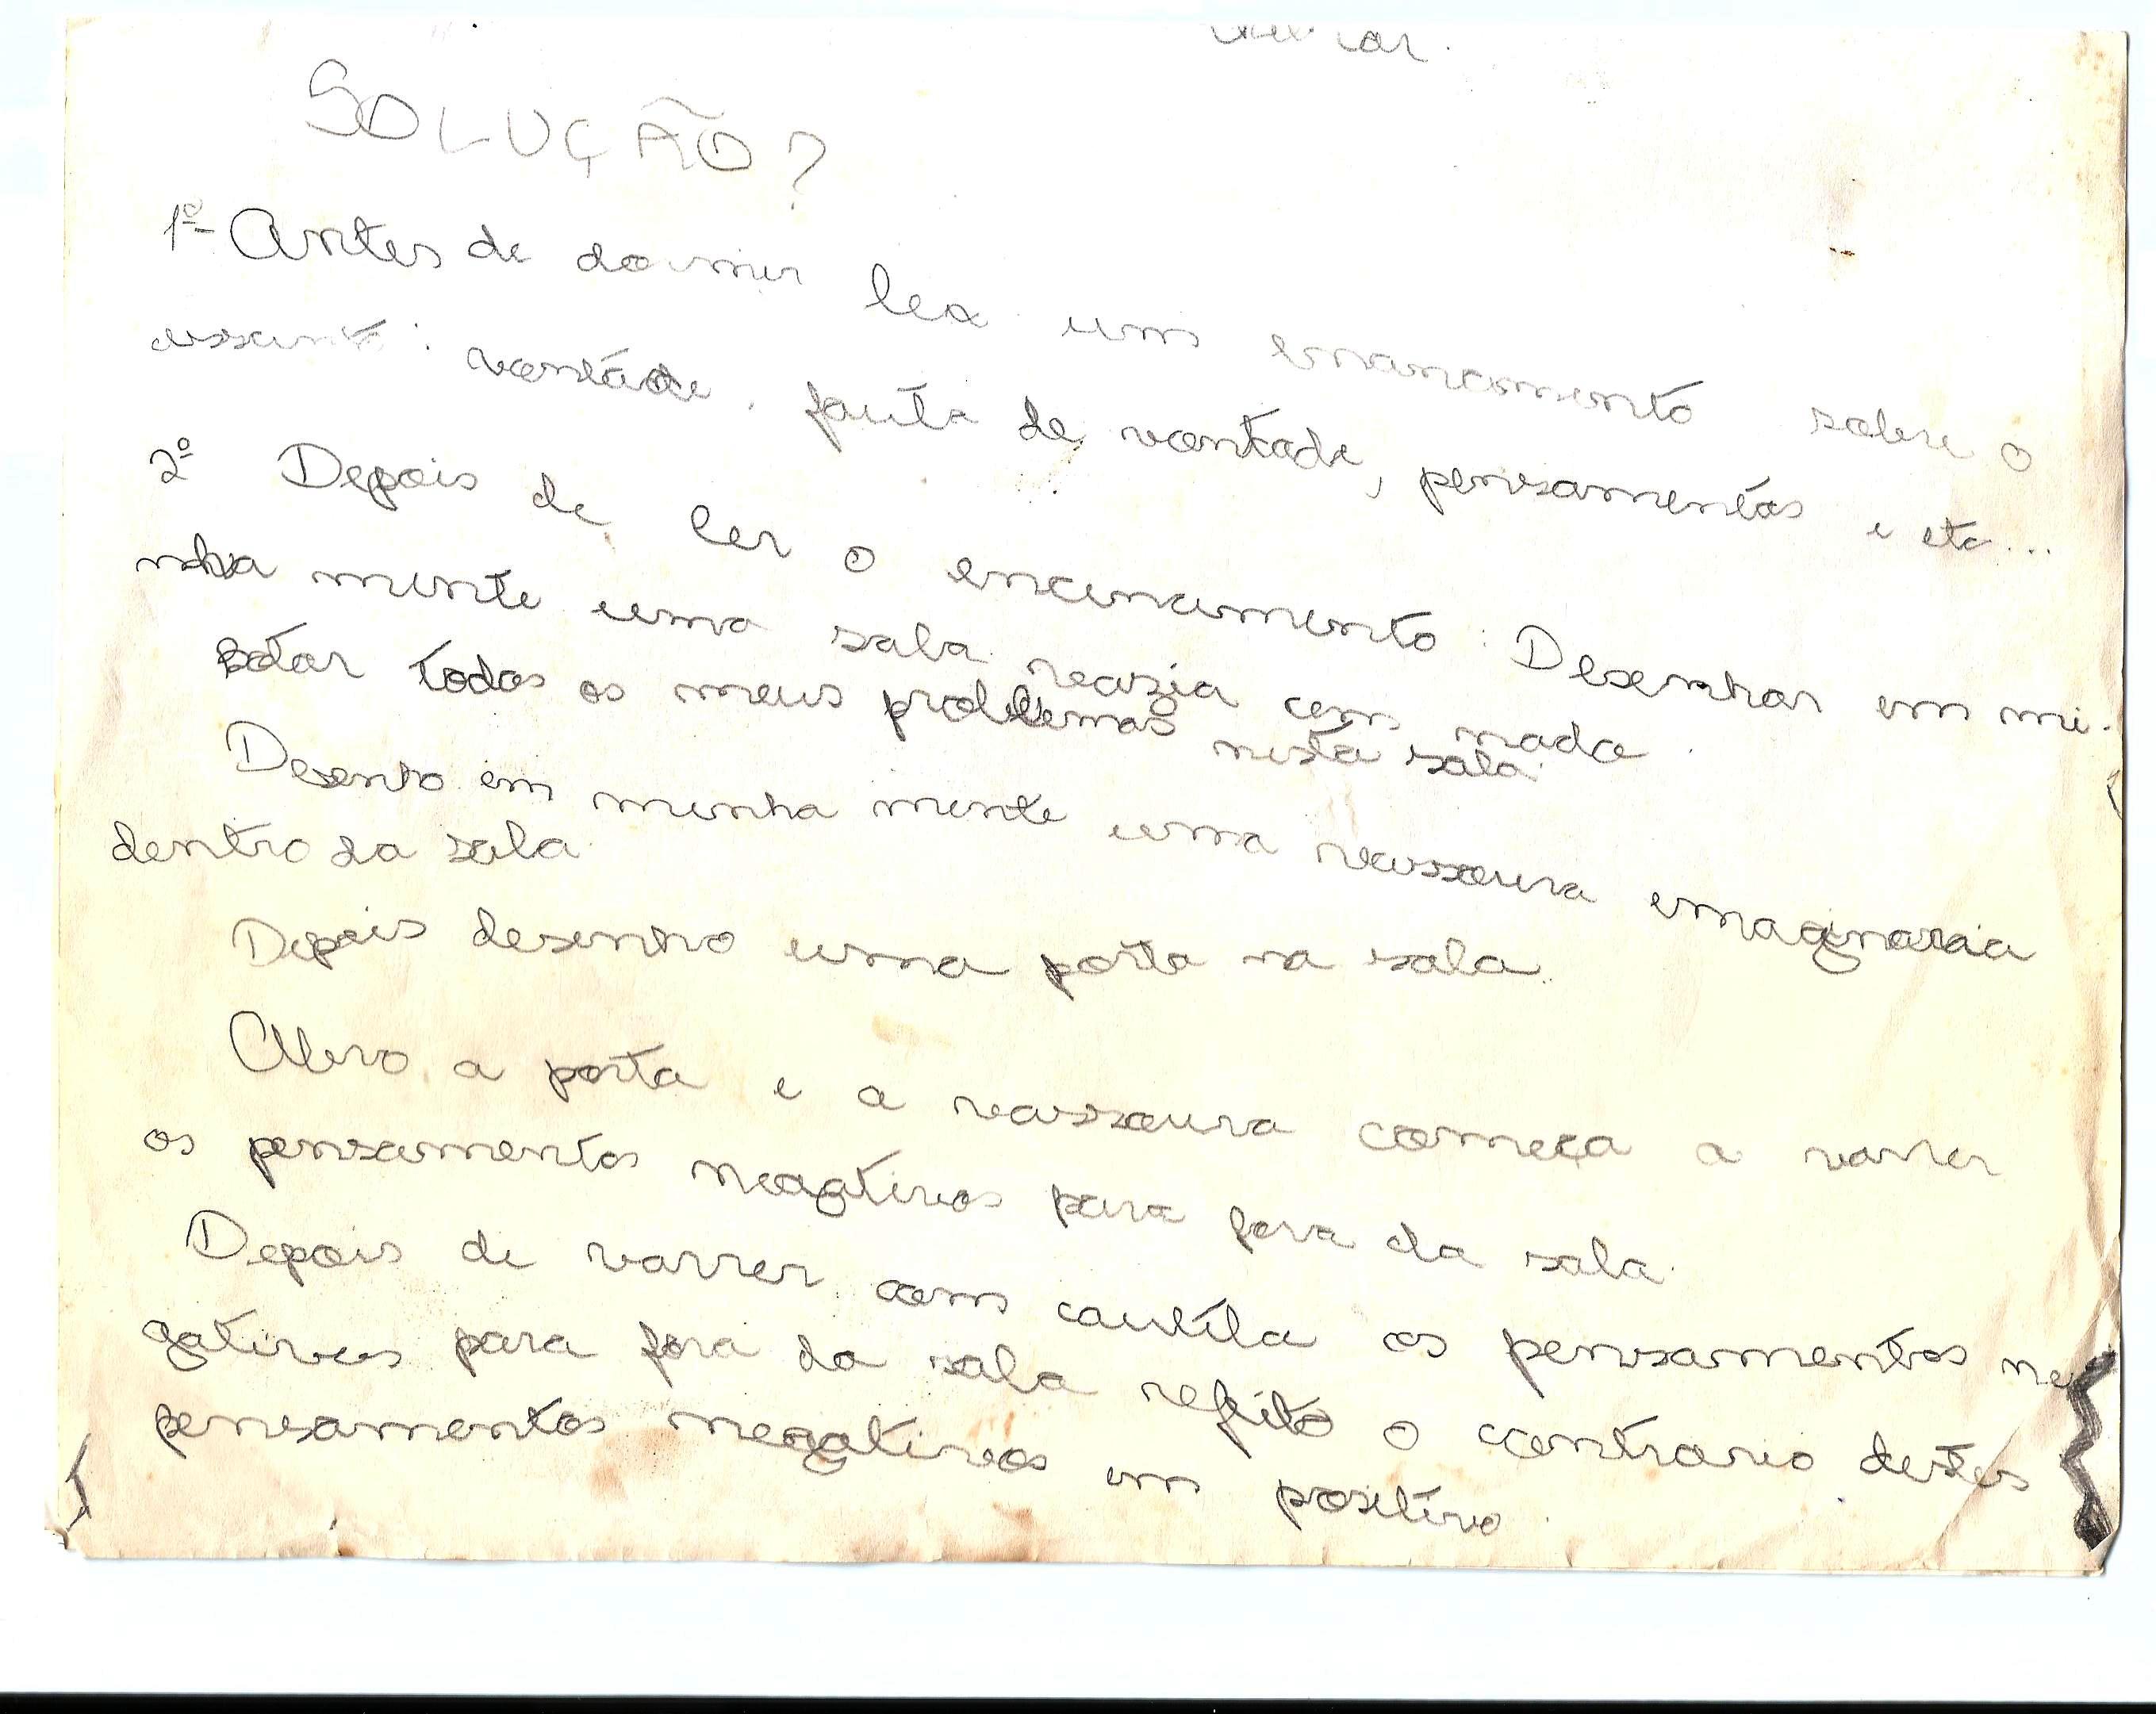 SOLUÇÃO?
1º- Antes de dormir lea um ensinamento sobre o
assunto: vontade, fauta de vontade, pensamentos e etc...
2º Depois de ler o encinamento: Desenhar em mi-
nha mente uma sala vazia com nada.
Botar todos os meus problemas nesta sala.
Desenho em minha mente uma vassoura emaginaria
dentro da sala.
Depois desenho uma porta na sala.
Abro a porta e a vassoura começa a varrer
os pensamentos neagtivos para fora da sala.
Depois de varrer com cautela os pensamentos ne
gativos para fora da sala refjito o contrario destes
pensamentos negativos em positivo.